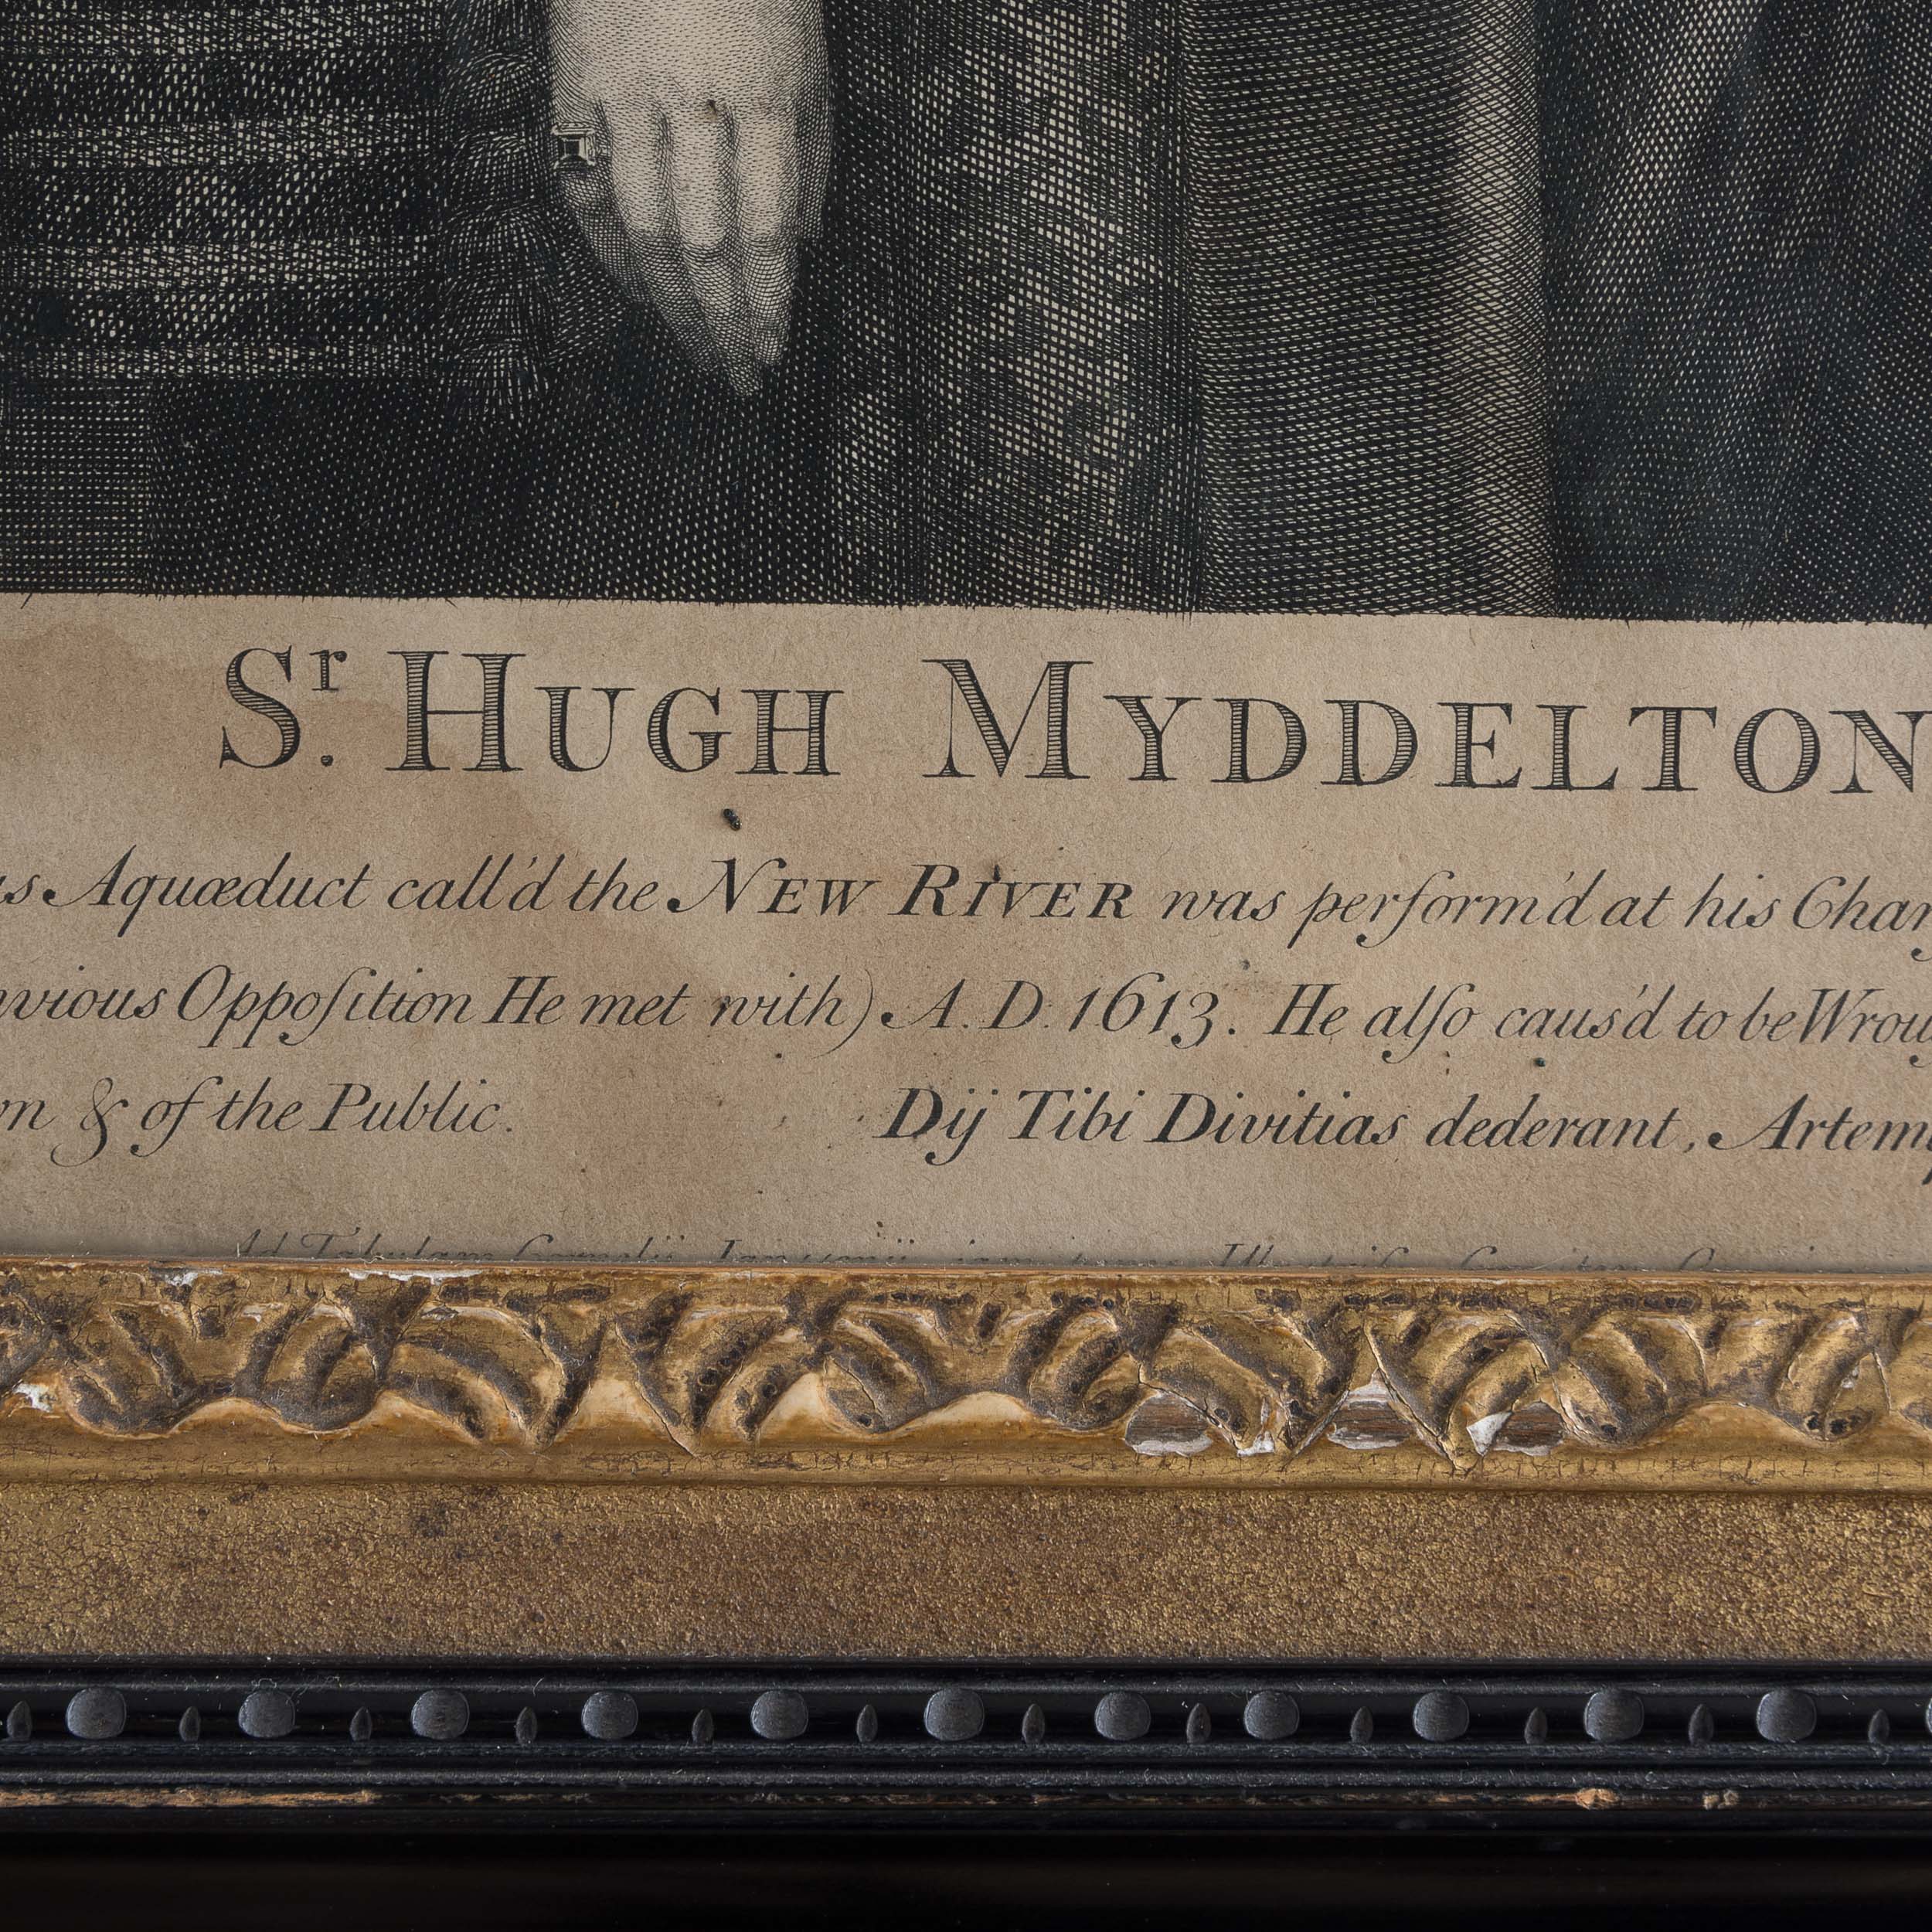 Sr. HUGH MYDDELTON
Aquæduct call'd the NEW RIVER was perform'd at his
Oppoſition He met with) A.D. 1613. He alſo caus'd to be
& of the Public. Dij Tibi Divitias dederant,
Ad Tabulam Cornelij